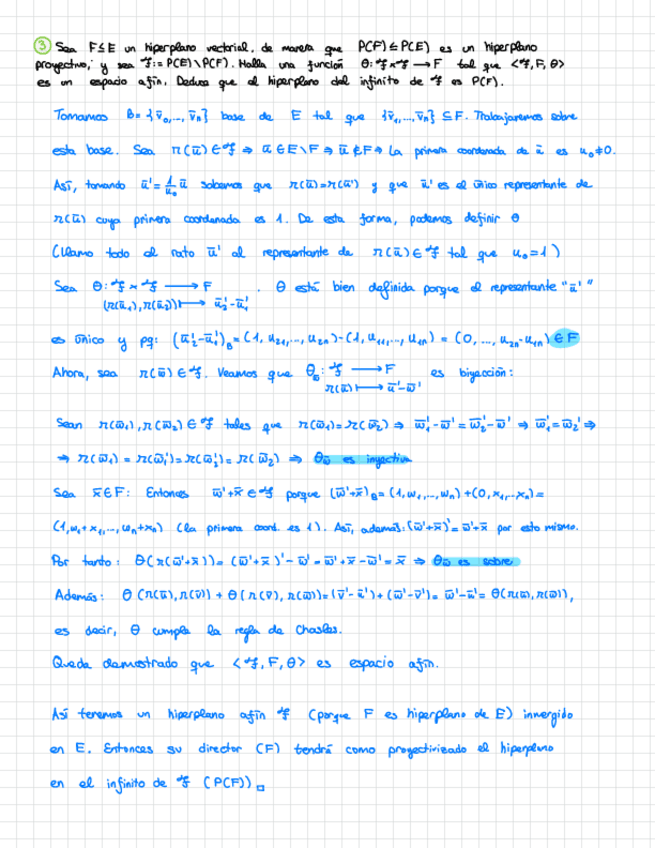 ③ Sea F≤E un hiperplano vectorial, de manera que P(F)≤P(E) es un hiperplano
proyectivo, y sea 𝓕 := P(E)\P(F). Halla una función Θ: 𝓕×𝓕 → F tal que <𝓕, F, Θ>
es un espacio afín. Deduce que el hiperplano del infinito de 𝓕 es P(F).
Tomamos B = {v̄₀,..., v̄ₙ} base de E tal que {v̄₁,..., v̄ₙ} ⊆ F. Trabajaremos sobre
esta base. Sea π(ū) ∈ 𝓕 ⇒ ū ∈ E\F ⇒ ū ∉ F ⇒ La primera coordenada de ū es u₀≠0.
Así, tomando ū' = 1/u₀ ū sabemos que π(ū)=π(ū') y que ū' es el único representante de
π(ū) cuya primera coordenada es 1. De esta forma, podemos definir Θ
(llamo todo el rato ū' al representante de π(ū) ∈ 𝓕 tal que u₀=1)
Sea Θ: 𝓕 × 𝓕 → F . Θ está bien definida porque el representante "ū'"
(π(ū₁), π(ū₂)) ↦ ū₂'-ū₁'
es único y pq: (ū₂'-ū₁')_B = (1, u₂₁,..., u₂ₙ)-(1, u₁₁,..., u₁ₙ) = (0, ..., u₂ₙ-u₁ₙ) ∈ F
Ahora, sea π(w̄) ∈ 𝓕. Veamos que Θ_w̄: 𝓕 → F es biyección:
π(ū) ↦ ū'-w̄'
Sean π(w̄₁), π(w̄₂) ∈ 𝓕 tales que π(w̄₁)=π(w̄₂) ⇒ w̄₁'-w̄' = w̄₂'-w̄' ⇒ w̄₁'=w̄₂' ⇒
⇒ π(w̄₁) = π(w̄₁')=π(w̄₂')=π(w̄₂) ⇒ Θ_w̄ es inyectiva
Sea x̄∈F: Entonces w̄'+x̄ ∈ 𝓕 porque (w̄'+x̄)_B = (1, w₁,..., wₙ) +(0, x₁,..., xₙ)=
(1, w₁+x₁,..., wₙ+xₙ) (la primera coord. es 1). Así, además: (w̄'+x̄)' = w̄'+x̄ por esto mismo.
Por tanto: Θ(π(w̄'+x̄)) = (w̄'+x̄)'-w̄' = w̄'+x̄-w̄' = x̄ ⇒ Θ_w̄ es sobre
Además: Θ(π(ū), π(v̄)) + Θ(π(v̄), π(w̄)) = (v̄'-ū')+(w̄'-v̄') = w̄'-ū' = Θ(π(ū), π(w̄)),
es decir, Θ cumple la regla de Chasles.
Queda demostrado que <𝓕, F, Θ> es espacio afín.
Así tenemos un hiperplano afín 𝓕 (porque F es hiperplano de E) inmergido
en E. Entonces su director (F) tendrá como proyectivizado el hiperplano
en el infinito de 𝓕 (P(F)) □